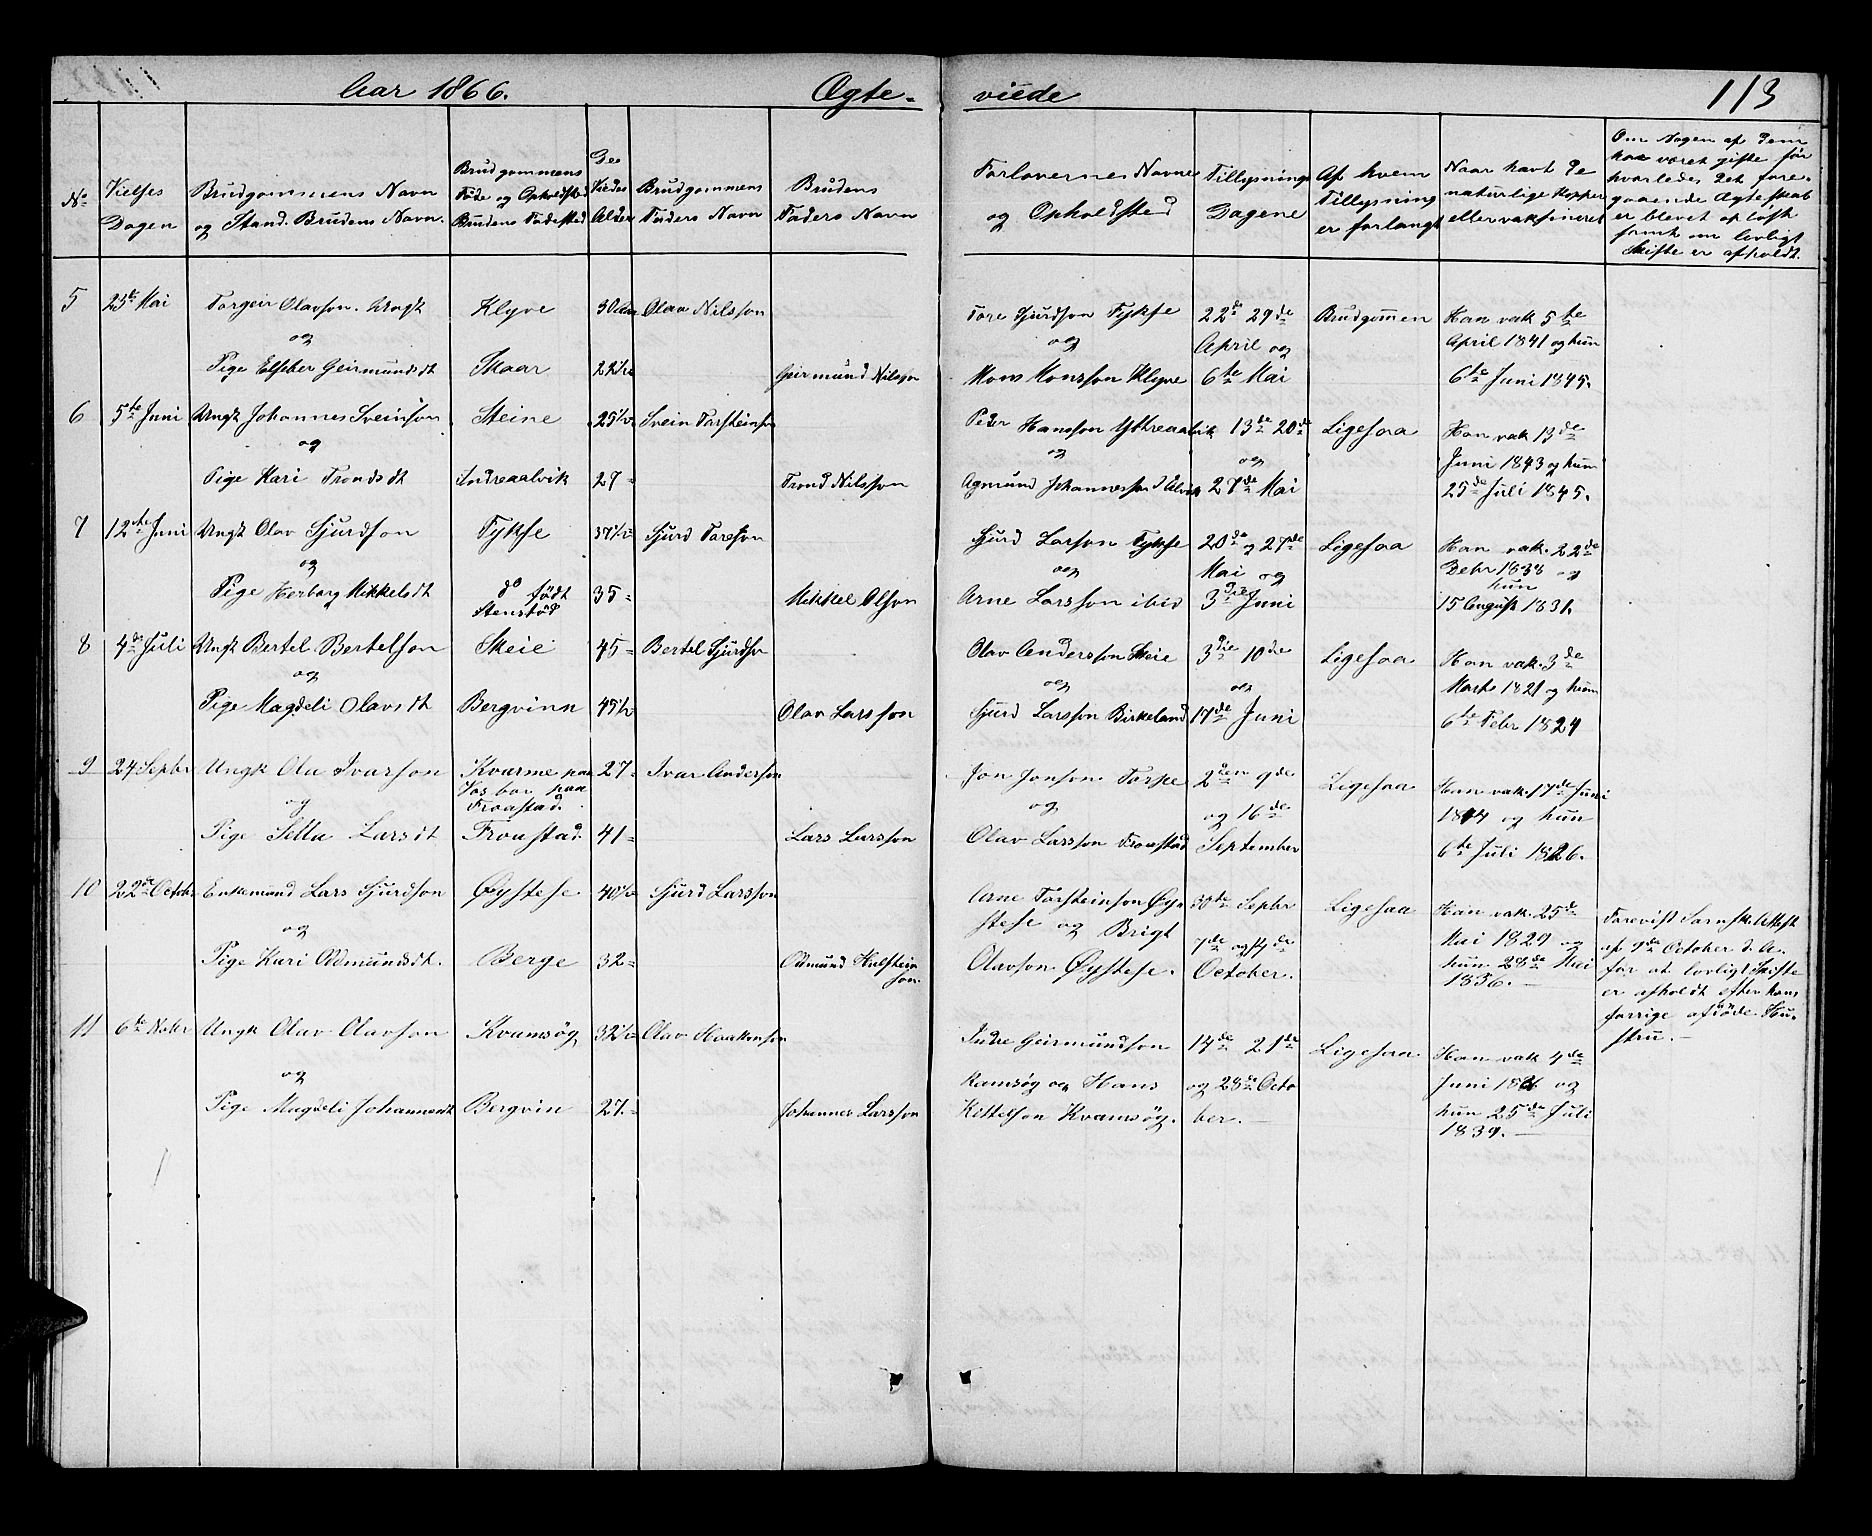 Aar 1866. Ægte- viede 113
No
Vielses Dagen
Brudgommens Navn og Stand. Brudens Navn.
Brudgommens Føde og Opholdsted Brudens Fødested
Vieds Alder
Brudgommens Faders Navn
Brudens Faders Navn
Forlovernes Navne og Opholdsted
Tillysnings Dagene
Af hvem Tillysning er forlangt
Naar havt De naturlige Kopper eller vaksineret
Om Nogen af Dem har været gifte før hvorledes Det fore- gaaende Ægteskab er blevet opløst samt om lovligt Skifte er afholdt.
5 25de Mai Torgeir Olavson. Ungk Klyve 30 Aar Olav Nilsson Tore Sjurdson Fykse 22de 29de Brudgommen Han vak 5te
og og April og April 1841 og hun
Pige Elseber Geirmundsdt Skaar 22½ Geirmund Nilson Mons Monsson Klyve 6te Mai 6te Juni 1845.
6 5te Juni Ungk Johannes Sveinson Steine 25½ Svein Torsteinson Peder Hansson Ytreaalvik 13de 20de Ligesaa Han vak 13de
og og og Juni 1843 og hun
Pige Kari Trondsdt Indreaalvik 27- Trond Nilsson Agmund Johannesson Aalvik 27de Mai 25de Juli 1845.
7 12te Juni Ungk Olav Sjurdson Fykse 37½ Sjurd Toreson Sjurd Larson Fykse 20de og 27de Ligesaa Han vak. 22de
og og Mai og Debr 1838 og hun
Pige Herborg Mikkelsdt do født Stenstød 35- Mikkel Olson Arne Larsson ibid 3die Juni 15 August 1831.
8 4de Juli Ungk Bertel Bertelson Skeie 45- Bertel Sjurdson Olav Andersson Skeie 3die 10de Ligesaa Han vak. 3de
og og og Marts 1821 og hun
Pige Magdeli Olavsdt Bergvinn 45½ Olav Larsson Sjurd Larsson Birkeland 17de Juni 6te Febr 1824
9 24 Sepbr Ungk Ola Ivarson Kvarme paa Vos bor paa Froastad. 27- Ivar Anderson Jon Jonson Torpe 2den 9de Ligesaa Han vak. 17de Juni
og og og 16de 1844 og hun
Pige Sella Larsdt Froastad 41- Lars Larsson Olav Larsson Froastad September 6te Juli 1826.
10 22de Octobr Enkemand Lars Sjurdson Øystese 40½ Sjurd Larsson Arne Torsteinson Øy- 30te Sepbr Ligesaa Han vak. 25de Forevist Attest
og stese og Brigt 7de og 14de Mai 1829 og af 9de October d. A.
Pige Kari Odmundsdt. Berge 32- Odmund Halstein son. Olavson Øystese. October. hun 28de Mai 1836. for at lovligt Skifte
er afholdt efter hans
forrige afdøde Hu-
stru.-
11 6te Nobr Ungk Olav Olavson Kvamsøg 32½ Olav Haakonson Indre Geirmundson 14de 21de Ligesaa Han vak 4de
og Kamsøg og Hans og 28de Octo Juni og
Pige Magdeli Johannesdt Bergvin 27.- Johannes Larsson Kittelson Kvamsøg. ber. hun 25de Juli
1839.